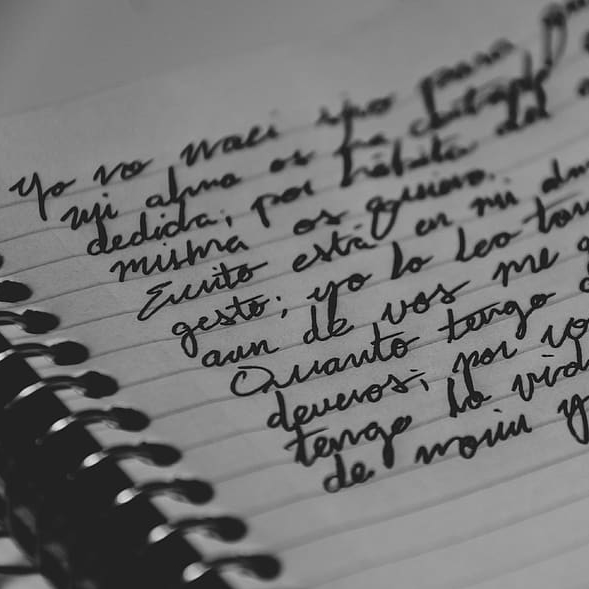 Yo no naci sino para
mi alma os ha cortado
dedida; por hábito del
misma os quiero.
Escrito está en mi alm
gesto; yo lo leo tan
aun de vos me g
Quanto tengo c
deveros; por vo
tengo la vid
de morir y